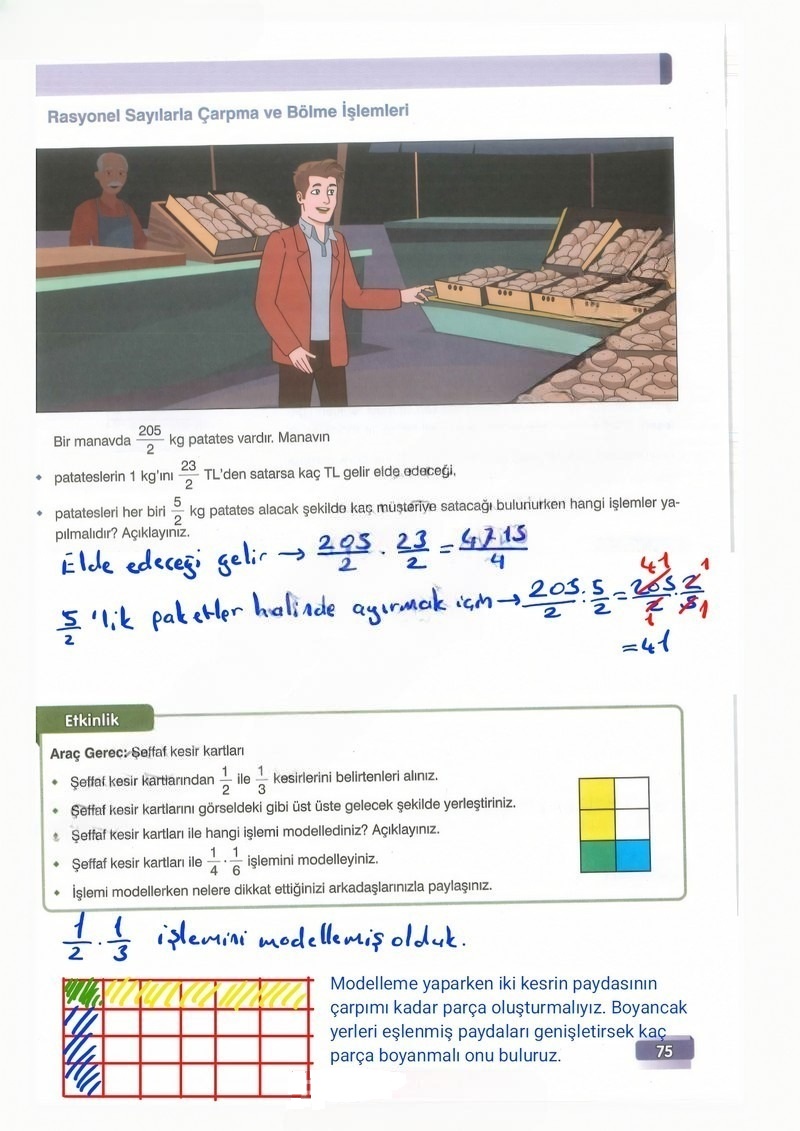 Rasyonel Sayılarla Çarpma ve Bölme İşlemleri
Bir manavda 205/2 kg patates vardır. Manavın
• patateslerin 1 kg'ını 23/2 TL'den satarsa kaç TL gelir elde edeceği,
• patatesleri her biri 5/2 kg patates alacak şekilde kaç müşteriye satacağı bulunurken hangi işlemler ya-
pılmalıdır? Açıklayınız.
Elde edeceği gelir → 205/2 . 23/2 = 4715/4
5/2 'lik paketler halinde ayırmak için → 205/2 : 5/2 = 205/2 . 2/5
41 1 1 1
= 41
Etkinlik
Araç Gereç: Şeffaf kesir kartları
• Şeffaf kesir kartlarından 1/2 ile 1/3 kesirlerini belirtenleri alınız.
• Şeffaf kesir kartlarını görseldeki gibi üst üste gelecek şekilde yerleştiriniz.
• Şeffaf kesir kartları ile hangi işlemi modellediniz? Açıklayınız.
• Şeffaf kesir kartları ile 1/4 . 1/6 işlemini modelleyiniz.
• İşlemi modellerken nelere dikkat ettiğinizi arkadaşlarınızla paylaşınız.
1/2 . 1/3 işlemini modellemiş olduk.
Modelleme yaparken iki kesrin paydasının
çarpımı kadar parça oluşturmalıyız. Boyancak
yerleri eşlenmiş paydaları genişletirsek kaç
parça boyanmalı onu buluruz.
75